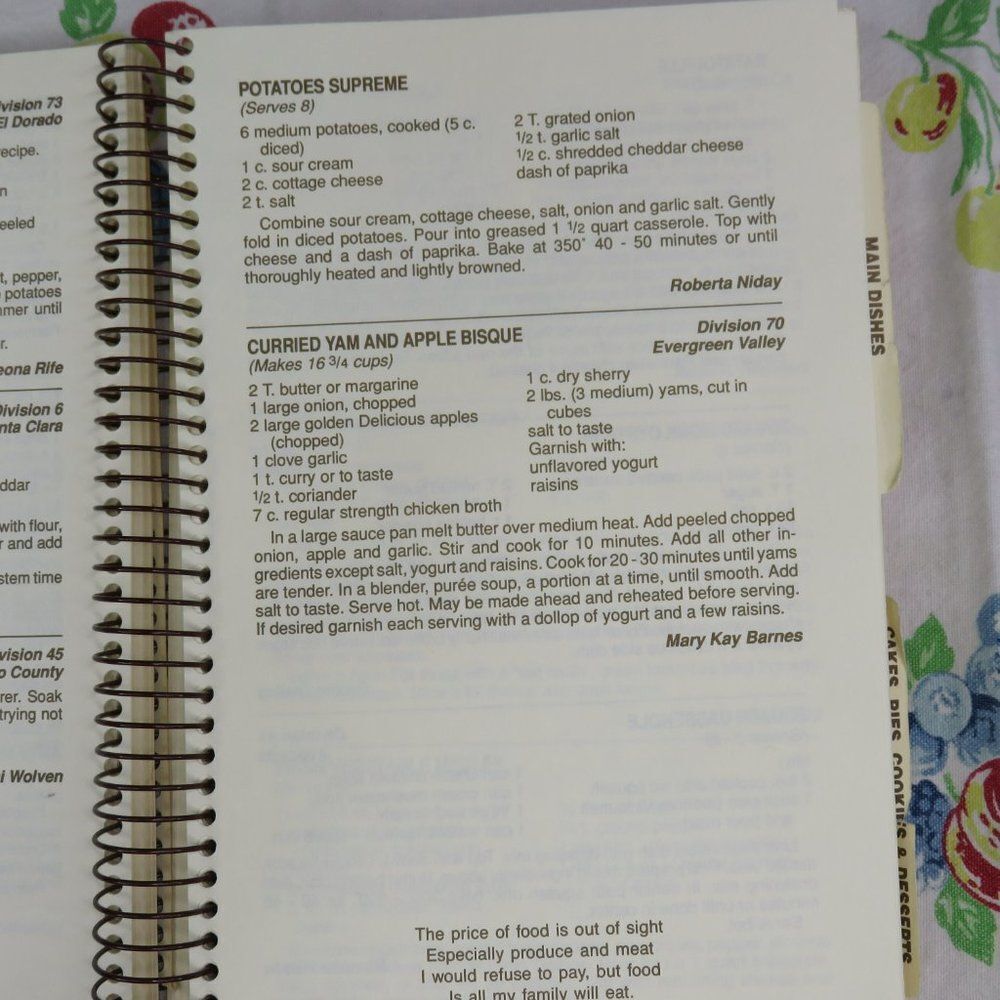 ivision 73
El Dorado
recipe.
n
eeled
t, pepper,
potatoes
mmer until
r.
eona Rife
Division 6
nta Clara
ddar
with flour,
r and add
stem time
vision 45
o County
rer. Soak
trying not
i Wolven
POTATOES SUPREME
(Serves 8)
6 medium potatoes, cooked (5 c.
diced)
1 c. sour cream
2 c. cottage cheese
2 t. salt
2 T. grated onion
1/2 t. garlic salt
1/2 c. shredded cheddar cheese
dash of paprika
Combine sour cream, cottage cheese, salt, onion and garlic salt. Gently
fold in diced potatoes. Pour into greased 1 1/2 quart casserole. Top with
cheese and a dash of paprika. Bake at 350° 40 - 50 minutes or until
thoroughly heated and lightly browned.
Roberta Niday
CURRIED YAM AND APPLE BISQUE
(Makes 16 3/4 cups)
Division 70
Evergreen Valley
2 T. butter or margarine
1 large onion, chopped
2 large golden Delicious apples
(chopped)
1 clove garlic
1 t. curry or to taste
1/2 t. coriander
7 c. regular strength chicken broth
1 c. dry sherry
2 lbs. (3 medium) yams, cut in
cubes
salt to taste
Garnish with:
unflavored yogurt
raisins
In a large sauce pan melt butter over medium heat. Add peeled chopped
onion, apple and garlic. Stir and cook for 10 minutes. Add all other in-
gredients except salt, yogurt and raisins. Cook for 20 - 30 minutes until yams
are tender. In a blender, purée soup, a portion at a time, until smooth. Add
salt to taste. Serve hot. May be made ahead and reheated before serving.
If desired garnish each serving with a dollop of yogurt and a few raisins.
Mary Kay Barnes
The price of food is out of sight
Especially produce and meat
I would refuse to pay, but food
Is all my family will eat.
MAIN DISHES
CAKES, PIES, COOKIES & DESSERTS